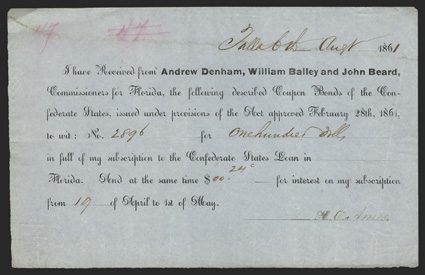 Talla 6th Augt 1861
I have Received from Andrew Denham, William Bailey and John Beard,
Commissioners for Florida, the following described Coupon Bonds of the Con-
federate States, issued under provisions of the Act approved February 28th, 1861,
to wit: No. 2896 for One hundred Dolls
in full of my subscription to the Confederate States Loan in
Florida. And at the same time $00. 24c for interest on my subscription
from 19 of April to 1st of May.